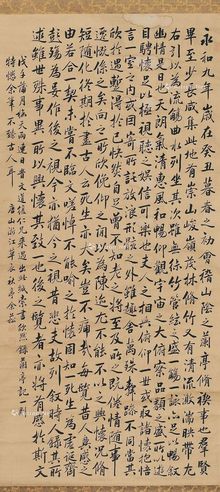 永和九年歲在癸丑暮春之初會稽山陰之蘭亭脩稧事也羣賢
畢至少長咸集此地有崇山峻嶺茂林脩竹又有清流激湍暎帶左
右引以為流觴曲水列坐其次雖無絲竹管絃之盛一觴一詠亦足以暢敘
幽情是日也天朗氣清惠風和暢仰觀宇宙之大俯察品類之盛所以遊
目騁懷足以極視聽之娛信可樂也夫人之相與俯仰一世或取諸懷抱悟
言一室之內或因寄所託放浪形骸之外雖趣舍萬殊靜躁不同當其
欣於所遇暫得於己快然自足曾不知老之將至及其所之既倦情隨事
遷感慨係之矣向之所欣俛仰之間以為陳迹猶不能不以之興懷況脩
短隨化終期於盡古人云死生亦大矣豈不痛哉每覽昔人興感之
由若合一契未嘗不臨文嗟悼不能喻之於懷固知一死生為虛誕齊
彭殤為妄作後之視今亦猶今之視昔悲夫故列敘時人錄其所
述雖世殊事異所以興懷其致一也後之覽者亦將有感於斯文
戊子蒲月